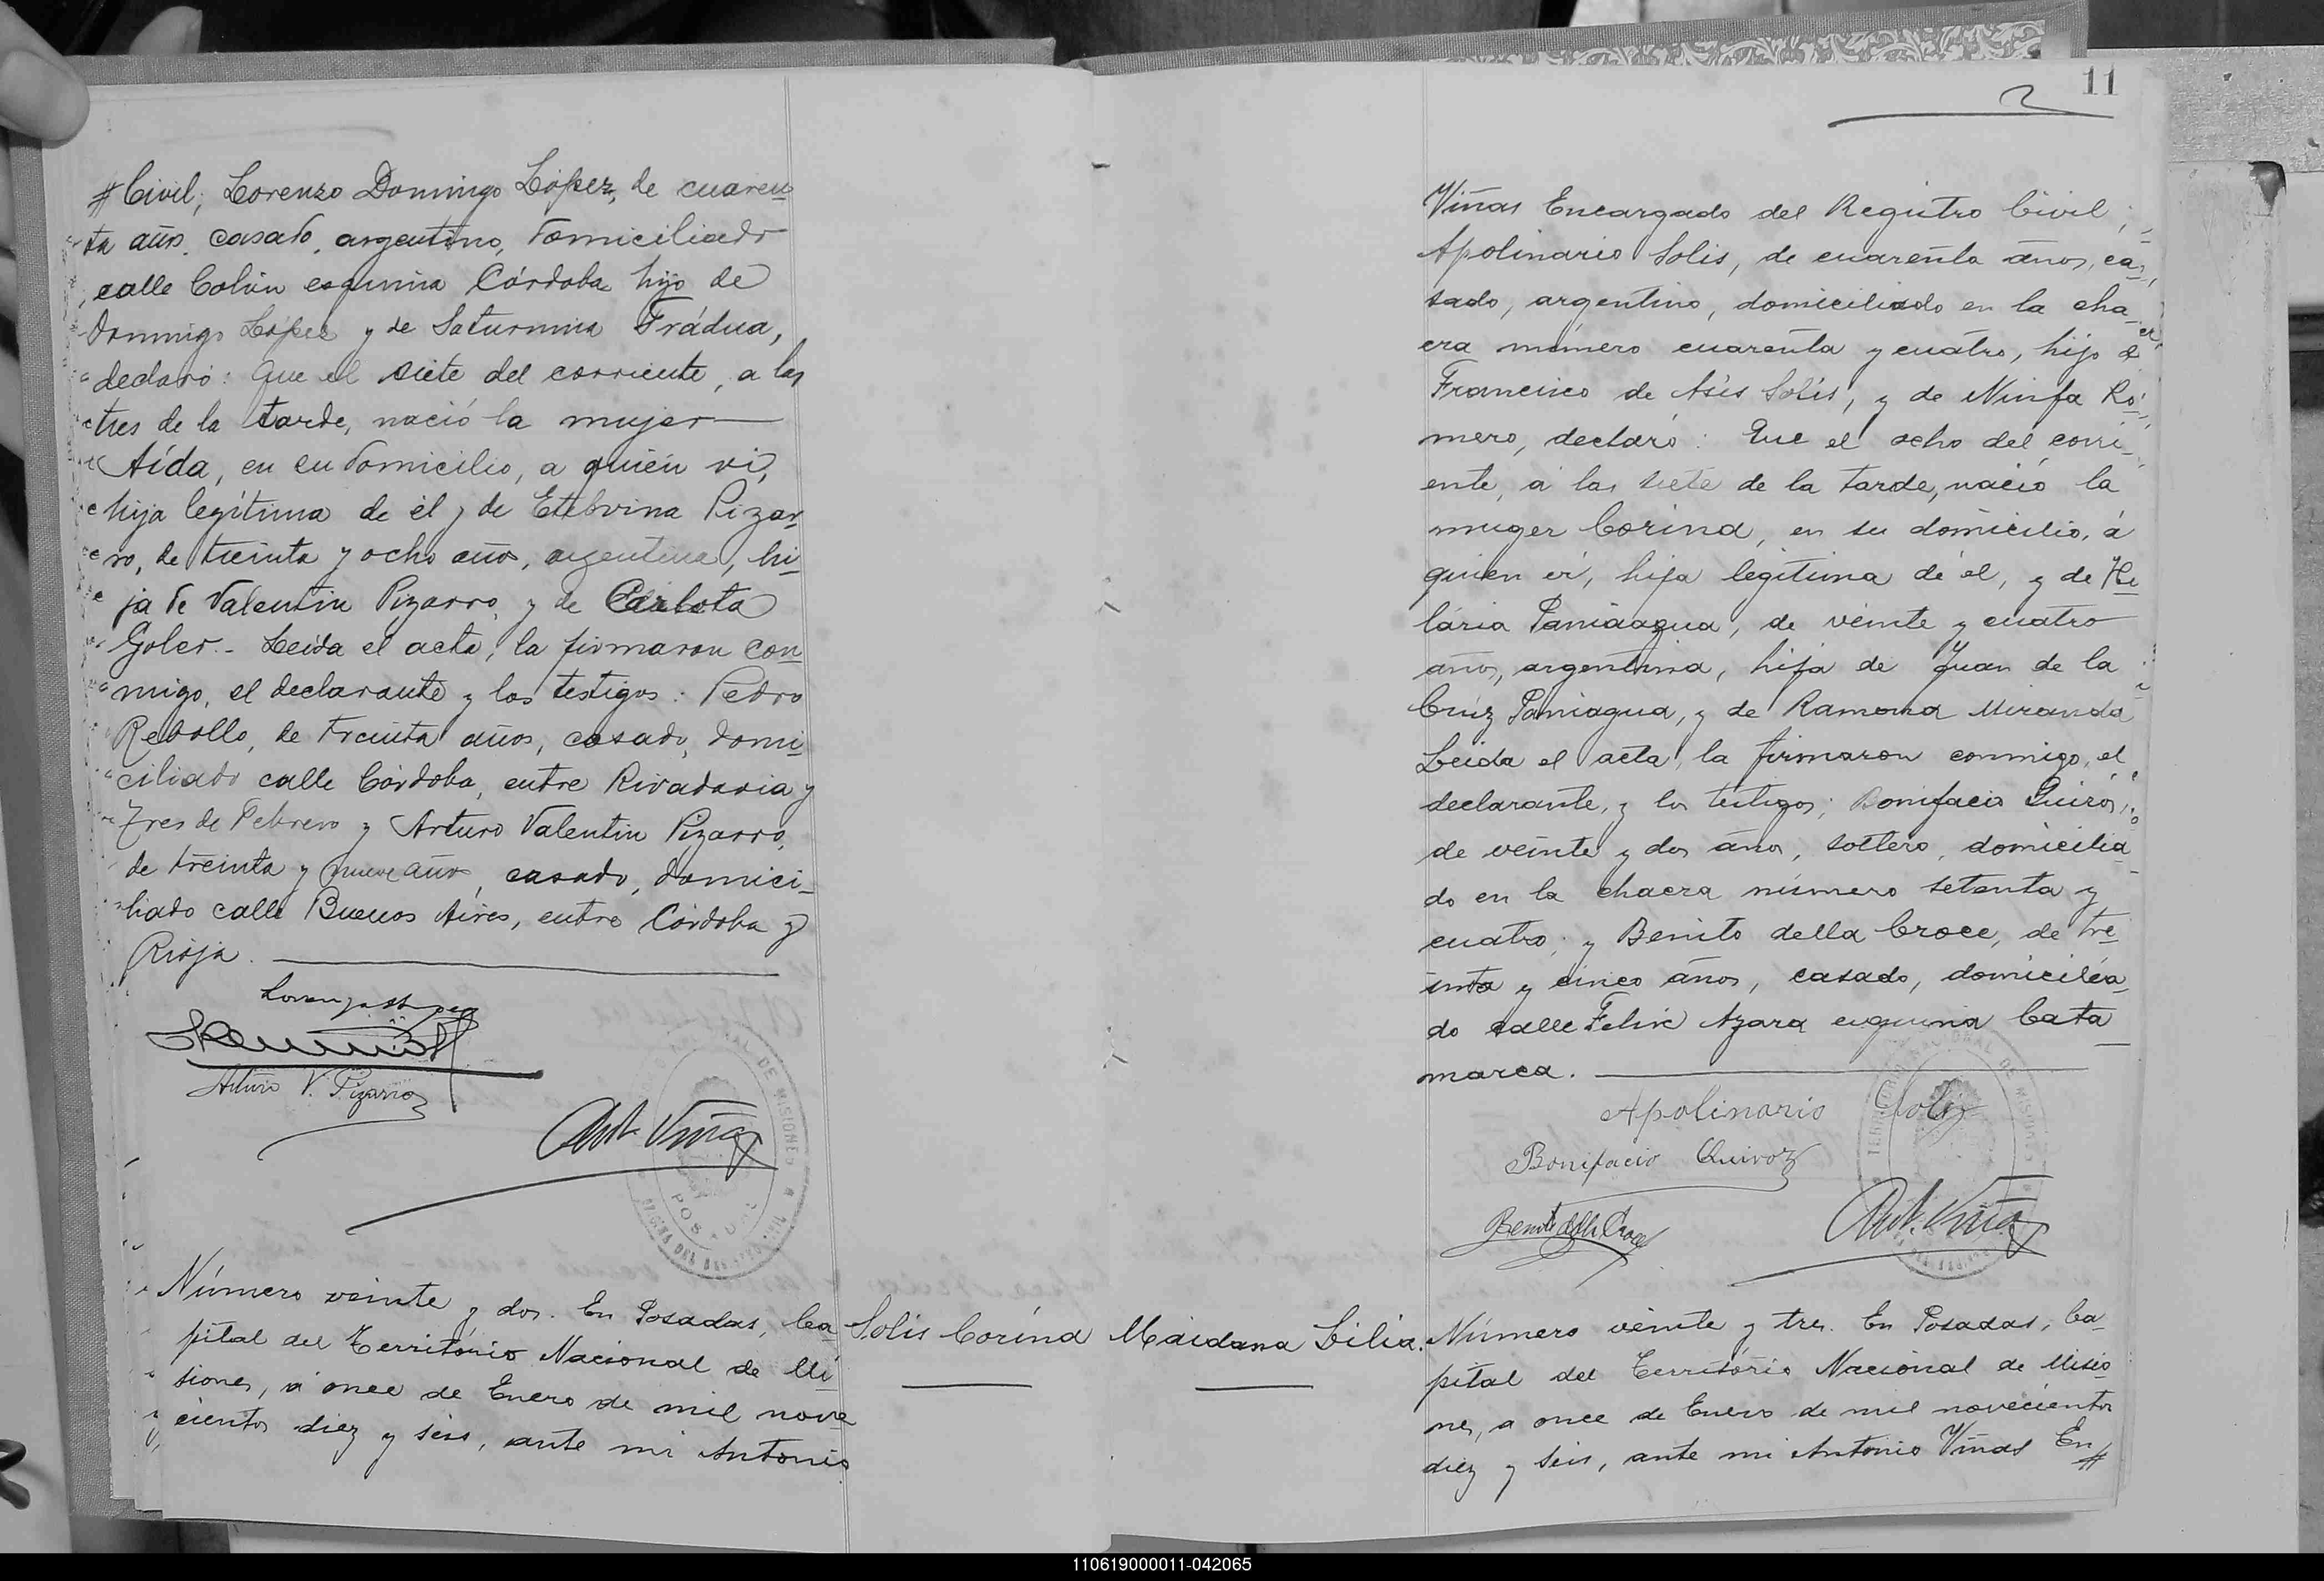 # Civil; Lorenzo Domingo López, de cuaren
ta años, casado, argentino, domiciliado
calle Colón esquina Córdoba hijo de
Domingo López y de Saturnina Frádua,
declaró: Que el siete del corriente, a las
tres de la tarde, nació la mujer
Aída, en su domicilio, a quién vi,
hija legítima de él y de Etelvina Pizar
ro, de treinta y ocho años, argentina, hi
ja de Valentin Pizarro, y de Carlota
Goler.- Leída el acta, la firmaron con
migo, el declarante y los testigos: Pedro
Rebollo, de treinta años, casado, domi
ciliado calle Córdoba, entre Rivadavia y
Tres de Febrero y Arturo Valentin Pizarro,
de treinta y nueve años, casado, domici-
liado calle Buenos Aires, entre Córdoba y
Rioja.
Arturo V. Pizarro
Ant. Viñas
Número veinte y dos. En Posadas, Ca
pital del Território Nacional de Mi
siones, á once de Enero de mil nove
cientos diez y seis, ante mi Antonio
Solis Corina
11
2
Viñas Encargado del Registro Civil;
Apolinario Solis, de cuarenta años, ca
sado, argentino, domiciliado en la cha
cra número cuarenta y cuatro, hijo de
Francisco de Asís Solís, y de Ninfa Ro
mero, declaró: Que el ocho del corri
ente, á las siete de la tarde, nació la
muger Corina, en su domicilio, á
quien vi, hija legitima de él, y de Hi
laria Paniaagua, de veinte y cuatro
años, argentina, hija de Juan de la
Cruz Paniagua, y de Ramona Miranda
Leida el acta, la firmaron conmigo, el
declarante, y los testigos; Bonifacio Quiros,
de veinte y dos años, soltero, domicilia
do en la chacra número setenta y
cuatro; y Benito della Croce, de tre
inta y cinco años, casado, domicilia
do calle Felix Azara esquina Cata
marca.
Apolinario Solis
Bonifacio Quiroz
Benito della Croce
Ant. Viñas
Maidana Lilia.
Número veinte y tres. En Posadas, Ca
pital del Território Nacional de Misio
nes, a once de Enero de mil novecientos
diez y seis, ante mi Antonio Viñas En #
110619000011-042065